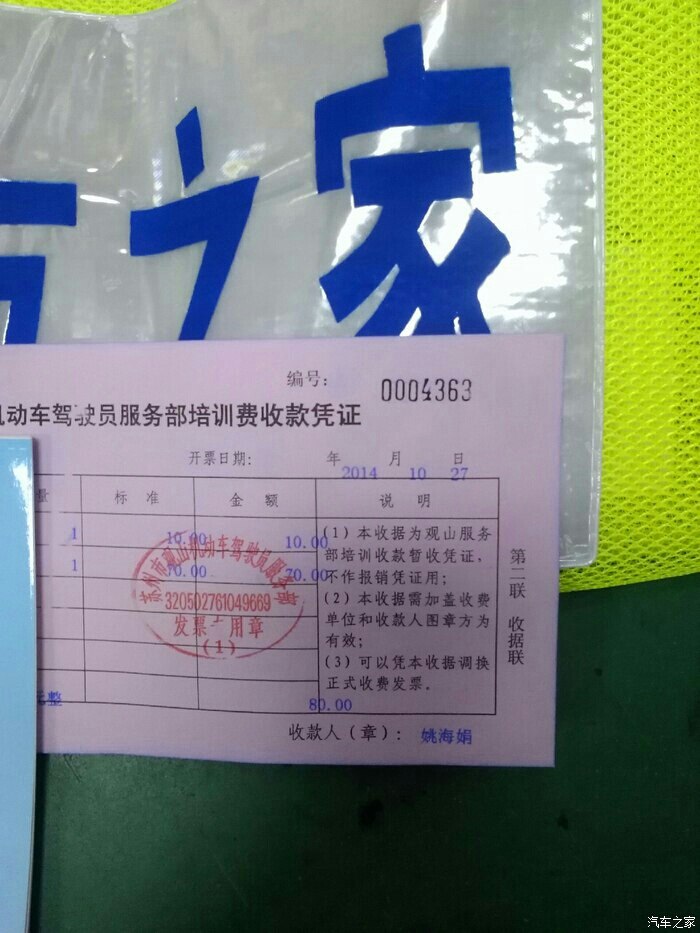 之家
编号: 0004363
动车驾驶员服务部培训费收款凭证
开票日期: 2014年 10月 27日
量 标准 金额 说明
1 10.00 10.00
1 70.00 70.00
(1)本收据为观山服务
部培训收款暂收凭证、
不作报销凭证用;
(2)本收据需加盖收费
单位和收款人图章方为
有效;
(3)可以凭本收据调换
正式收费发票.
第二联 收据联
苏州市观山机动车驾驶员服务部
320502761049669
发票专用章
(1)
整 80.00
收款人(章): 姚海娟
汽车之家